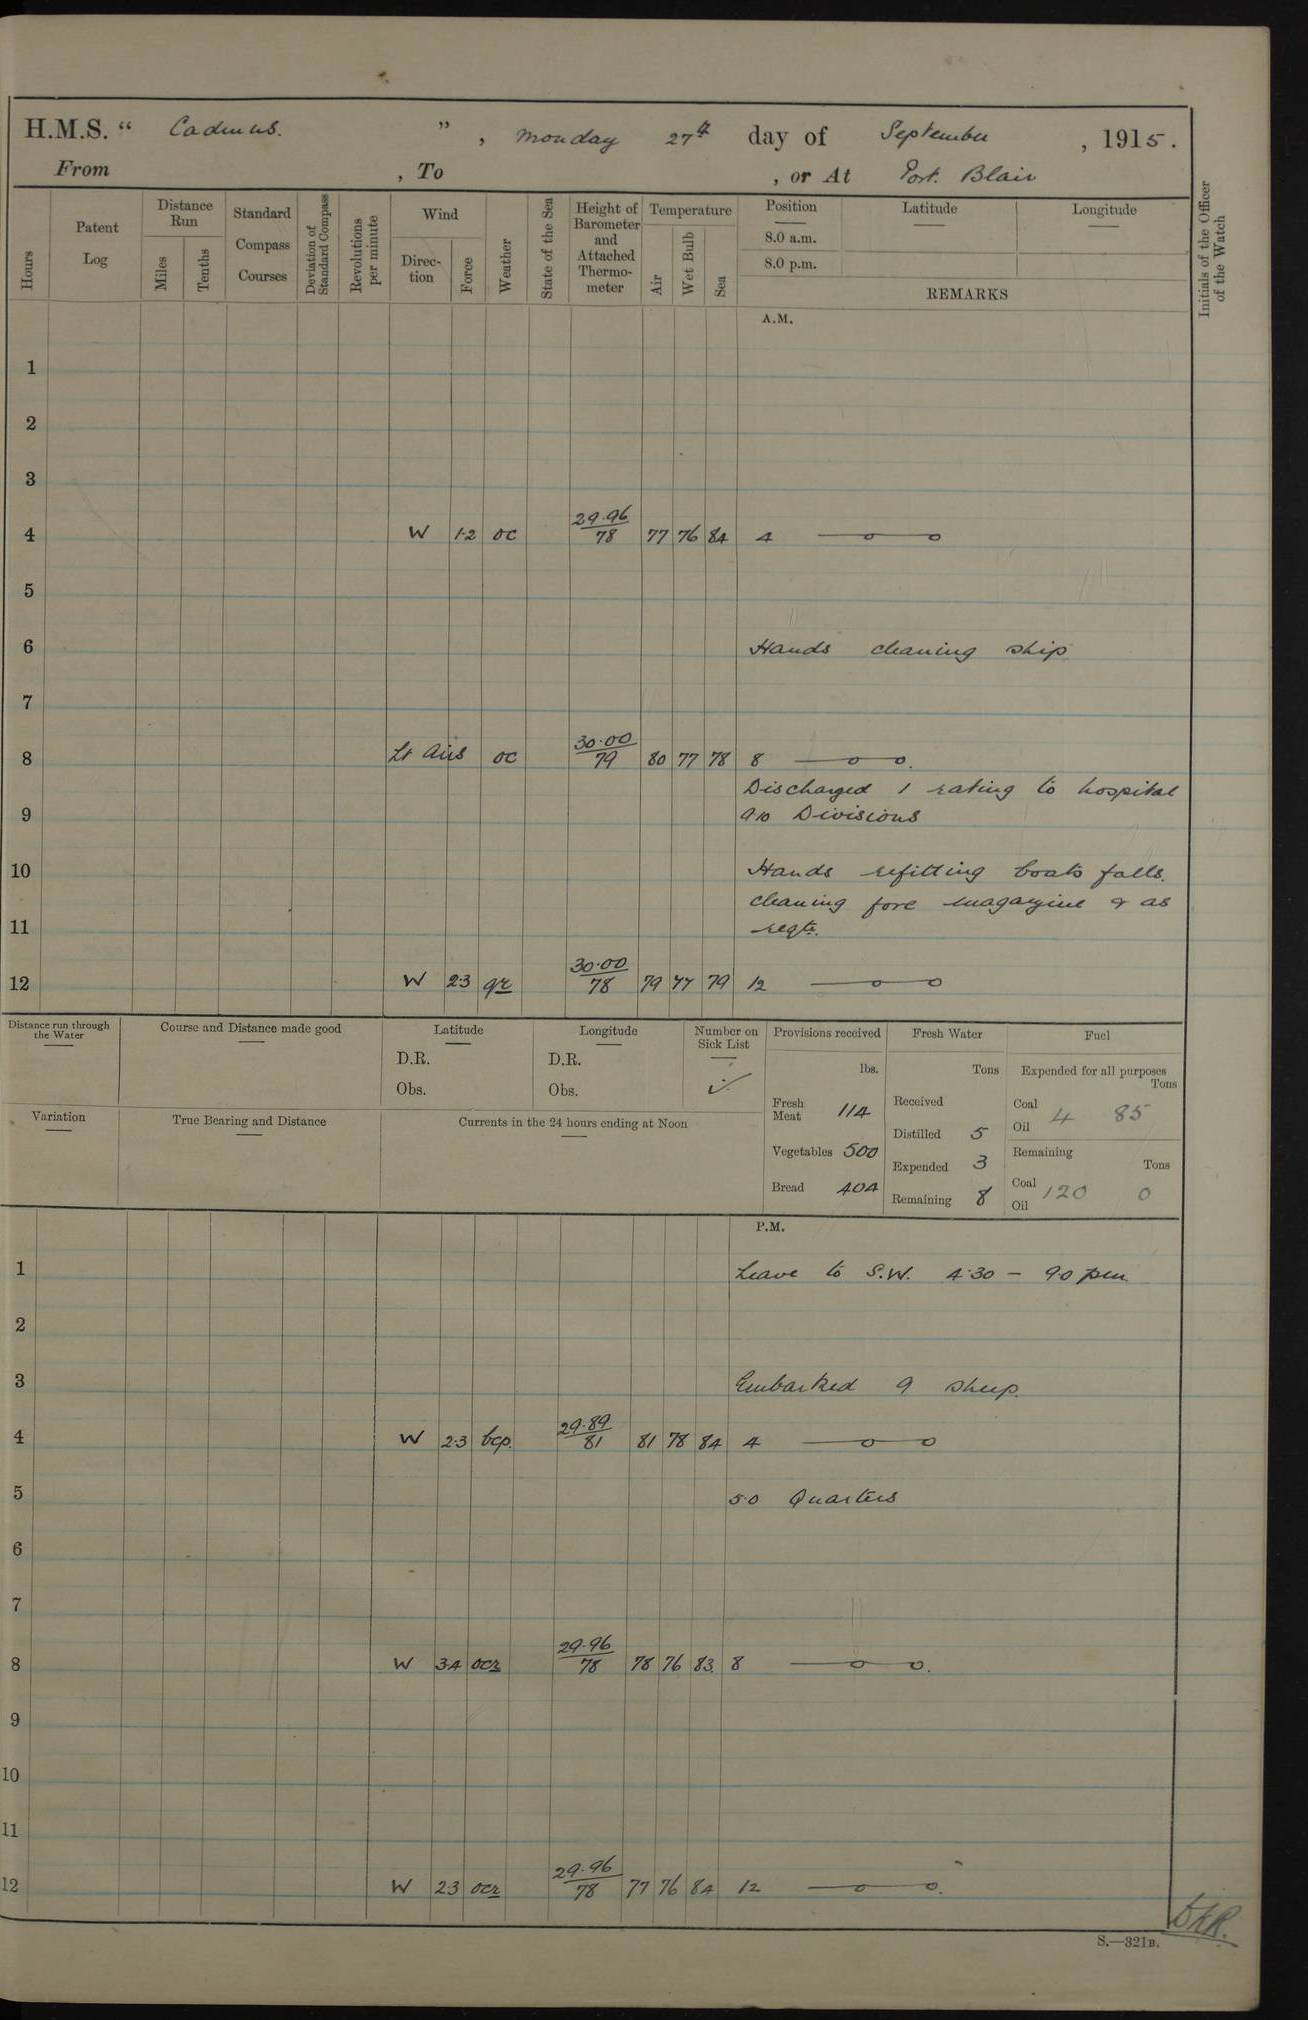 H.M.S. “ Cadmus. ” , Monday 27th day of September , 1915.
From , To , or At Port Blair
Hours
Patent Log
Distance Run
Miles
Tenths
Standard Compass Courses
Deviation of Standard Compass
Revolutions per minute
Wind
Direction
Force
Weather
State of the Sea
Height of Barometer and Attached Thermometer
Temperature
Air
Wet Bulb
Sea
Position
8.0 a.m.
8.0 p.m.
Latitude
Longitude
REMARKS
Initials of the Officer of the Watch
A.M.
1
2
3
4 W 1·2 oc 29·96/78 77 76 84 4
5
6 Hands cleaning ship
7
8 Lt Airs oc 30·00/79 80 77 78 8
Discharged 1 rating to hospital
9 910 Divisions
10 Hands refitting boats falls.
cleaning fore magazine & as
11 reqte.
12 W 2·3 qr 30·00/78 79 77 79 12
Distance run through the Water
Course and Distance made good
Latitude
D.R.
Obs.
Longitude
D.R.
Obs.
Number on Sick List
Provisions received
lbs.
Fresh Meat 114
Vegetables 500
Bread 404
Fresh Water
Tons
Received
Distilled 5
Expended 3
Remaining 8
Fuel
Expended for all purposes
Tons
Coal
Oil 4 85
Remaining
Tons
Coal
Oil 120 0
Variation
True Bearing and Distance
Currents in the 24 hours ending at Noon
P.M.
1 Leave to S.W. 4·30 – 9·0 pm
2
3 Embarked 9 sheep.
4 W 2·3 bcp. 29·89/81 81 78 84 4
5 5·0 Quarters
6
7
8 W 3·4 ocr 29·96/78 78 76 83 8
9
10
11
12 W 2·3 ocr 29·96/78 77 76 84 12
S.—321B.